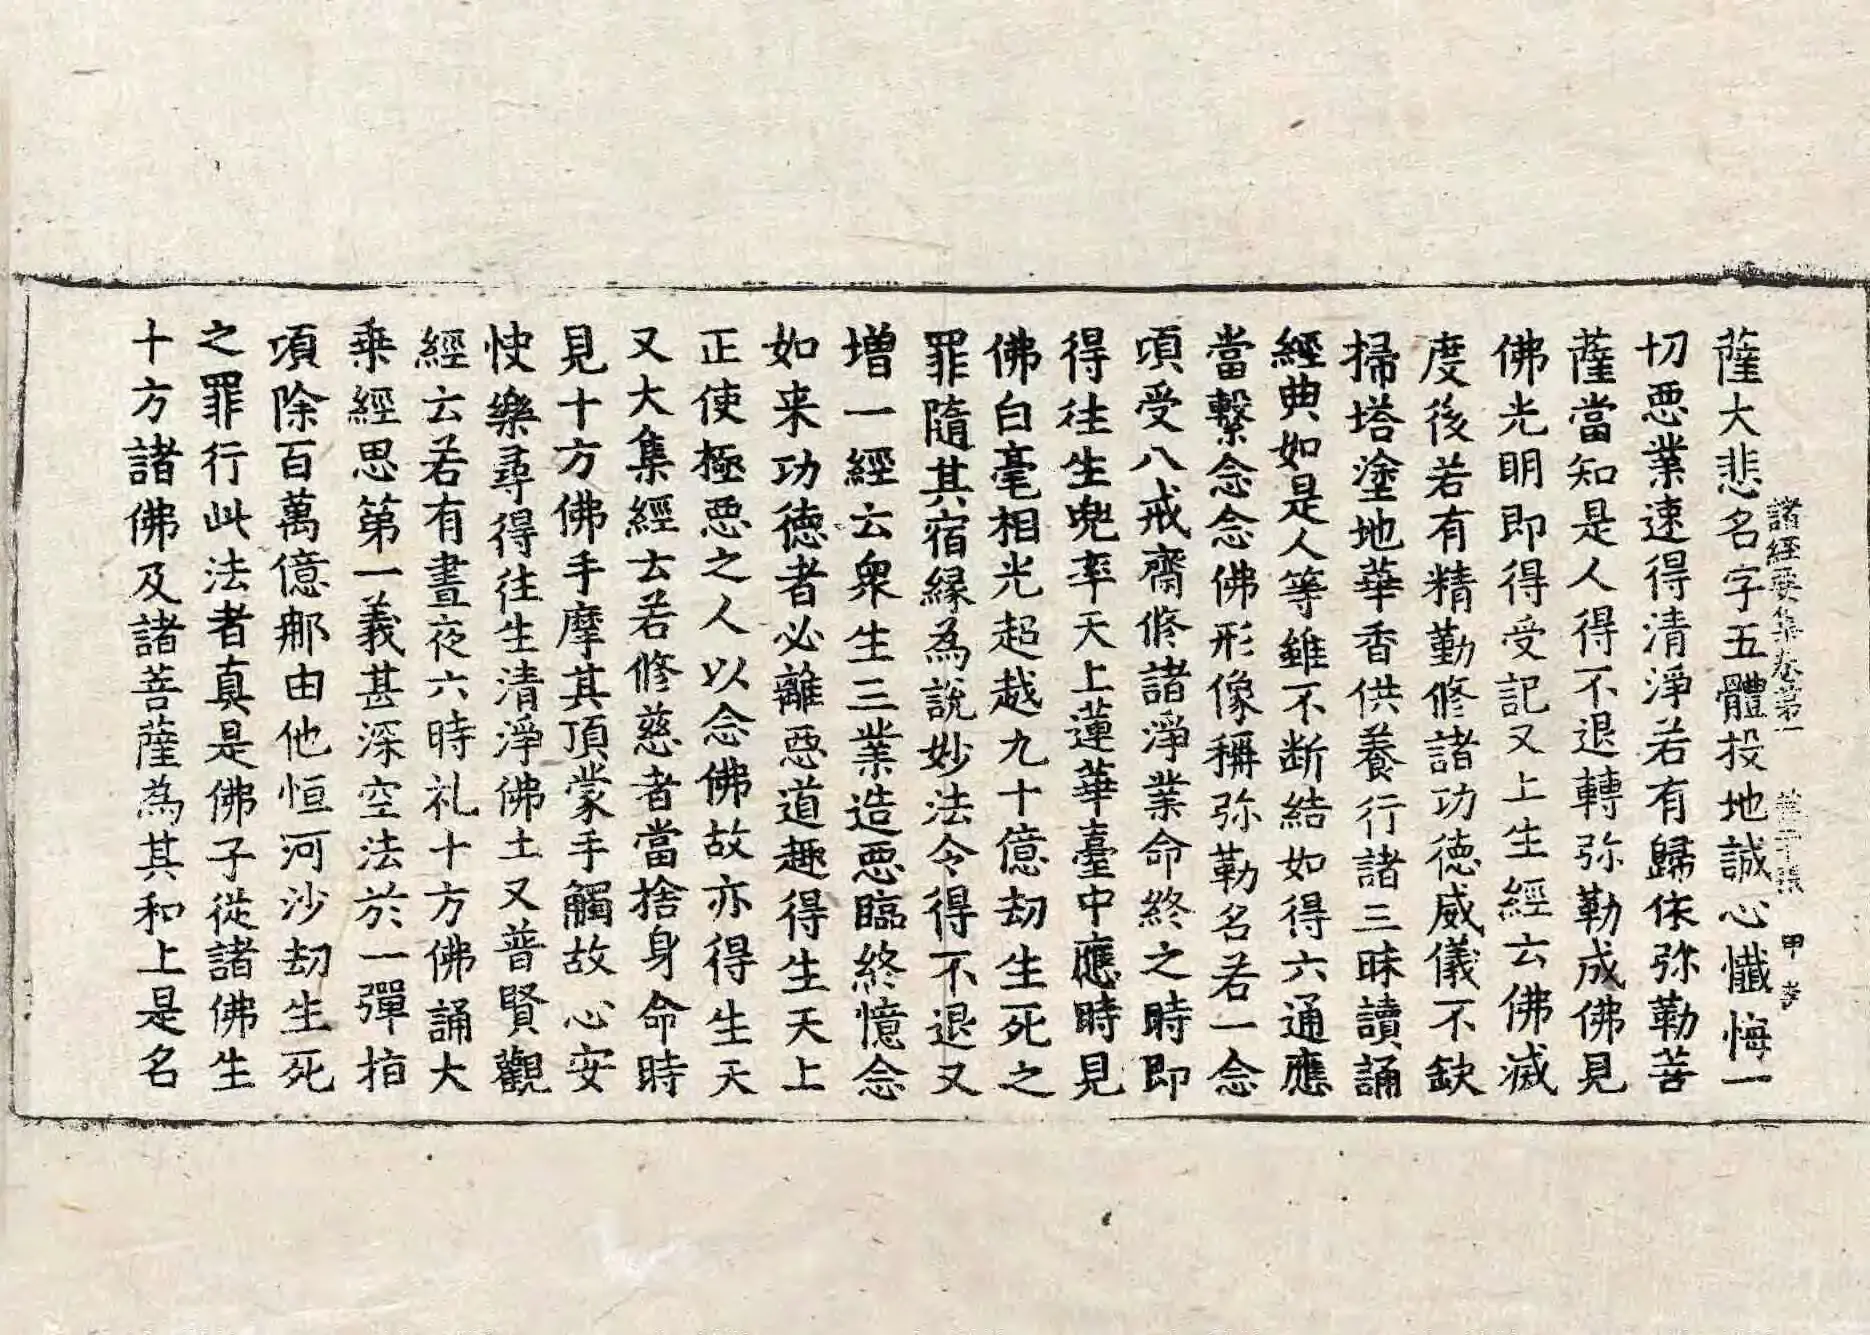 薩大悲名字五體投地誠心懺悔一
諸經要集卷苐一 甲
切惡業速得清淨若有歸依弥勒菩
薩當知是人得不退轉弥勒成佛見
佛光明即得受記又上生經云佛滅
度後若有精勤修諸功德威儀不缺
掃塔塗地華香供養行諸三昧讀誦
經典如是人等雖不断結如得六通應
當繫念念佛形像稱弥勒名若一念
頃受八戒齋修諸淨業命終之時即
得往生兜率天上蓮華臺中應時見
佛白毫相光超越九十億劫生死之
罪隨其宿緣為說妙法令得不退又
增一經云衆生三業造惡臨終憶念
如来功德者必離惡道趣得生天上
正使極惡之人以念佛故亦得生天
又大集經云若修慈者當捨身命時
見十方佛手摩其頂蒙手觸故心安
快樂尋得往生清淨佛土又普賢觀
經云若有晝夜六時礼十方佛誦大
乗經思第一義甚深空法於一彈指
頃除百萬億那由他恒河沙劫生死
之罪行此法者真是佛子從諸佛生
十方諸佛及諸菩薩為其和上是名